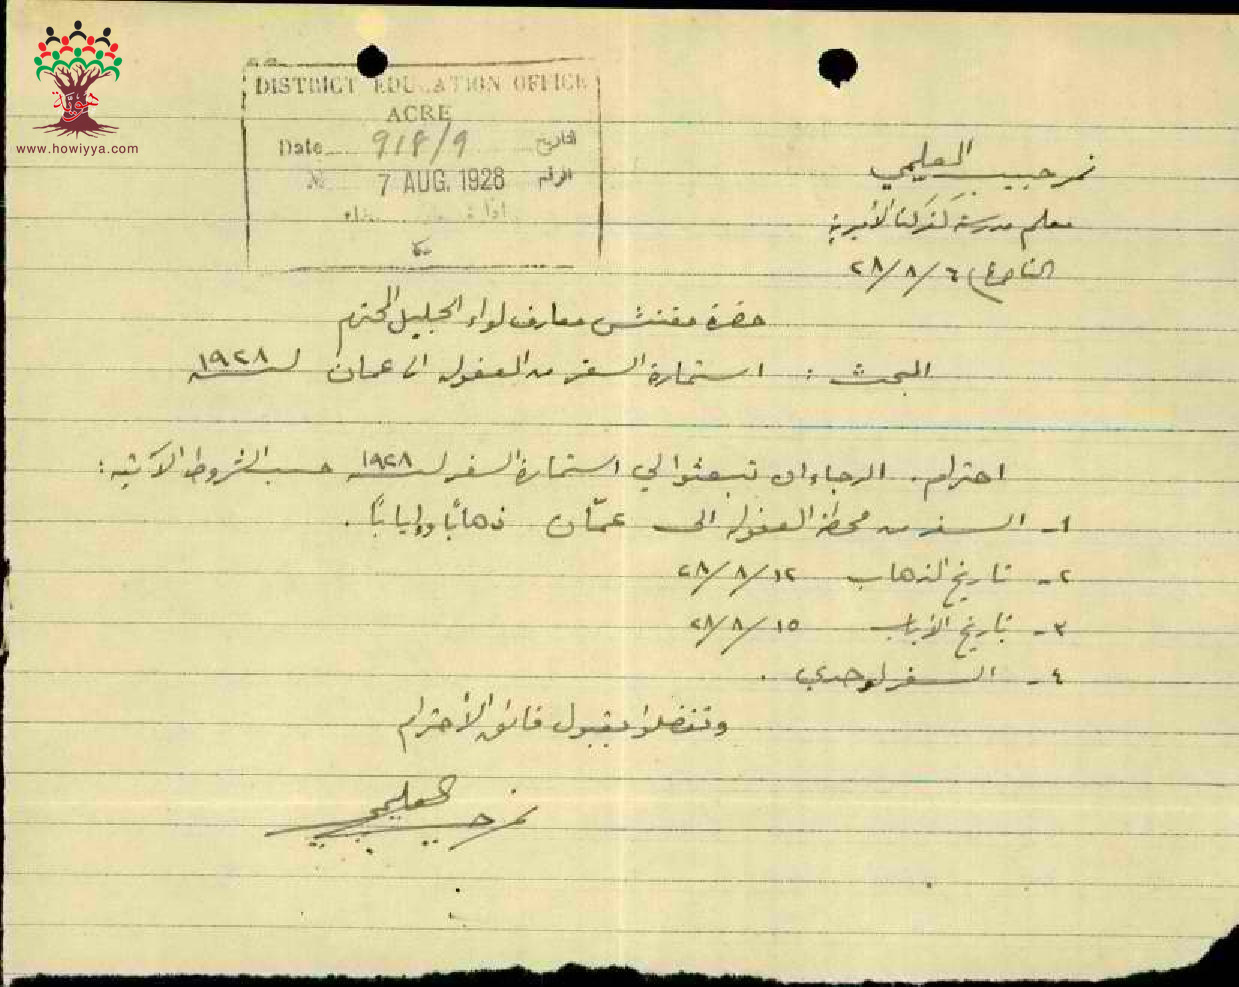 www.howiyya.com
DISTRICT EDUCATION OFFICE
ACRE
Date 918/9 التاريخ
No 7 AUG. 1928 الرقم
عكا
نمر حبيب العليمي
معلم مدرسة كفركنا الأميرية
الناصرة في ٦/٨/٢٨
حضرة مفتش معارف لواء الجليل المحترم
البحث : استمارة السفر من العفوله الى عمان لسنة ١٩٢٨
احترام. الرجاء ان تبعثوا لي استمارة السفر لسنة ١٩٢٨ حسب الشروط الآتيه :
١- السفر من محطة العفوله الى عمّان ذهاباً وإياباً .
٢- تاريخ الذهاب ١٢/٨/٢٨
٣- تاريخ الأياب ١٥/٨/٢٨
٤- السفر لوحدي .
وتفضلوا بقبول فائق الأحترام
نمر حبيب العليمي